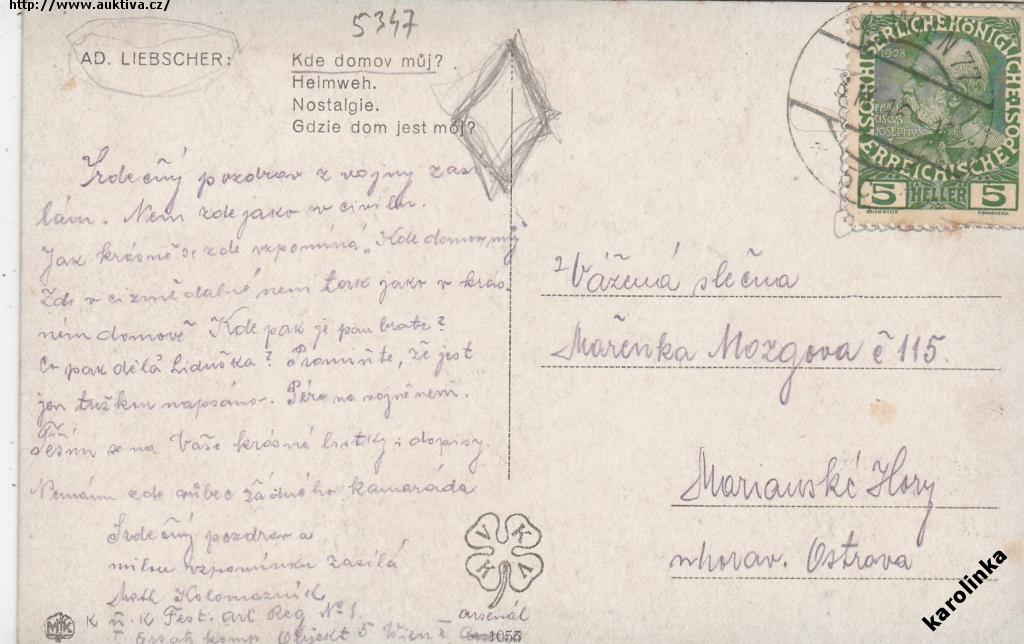 http://www.auktiva.cz/
5347
AD. LIEBSCHER:
Kde domov můj?
Heimweh.
Nostalgie.
Gdzie dom jest mój?
Srdečný pozdrav z vojny zas
lám. Není zde jako v civilu.
Jak krásně se zde vzpomíná „Kde domov můj
Zde v cizině dálné není tak jako v krás
ném domově Kde pak je pan bratr?
Co pak dělá Liduška? Promiňte, že jest
jen tužkou napsáno. Péro na vojně není.
Těším se na Vaše krásné lístky i dopisy.
Nemám zde vůbec žádného kamaráda
Srdečný pozdrav a
milou vzpomínku zasílá
Meth. Kolomazník
K. u. K Fest. Art Reg № 1.
Objekt 5 Wien
arsenál
1055
K V K V
MK
KAISERLICHE KÖNIGLICHE ÖSTERREICHISCHE POST
1908
FRANCISCUS JOSEPHUS
5 HELLER 5
WIEN
Vážená slečna
Mařenka Mozgova č 115.
Marianské Hory
morav. Ostrava
karolinka